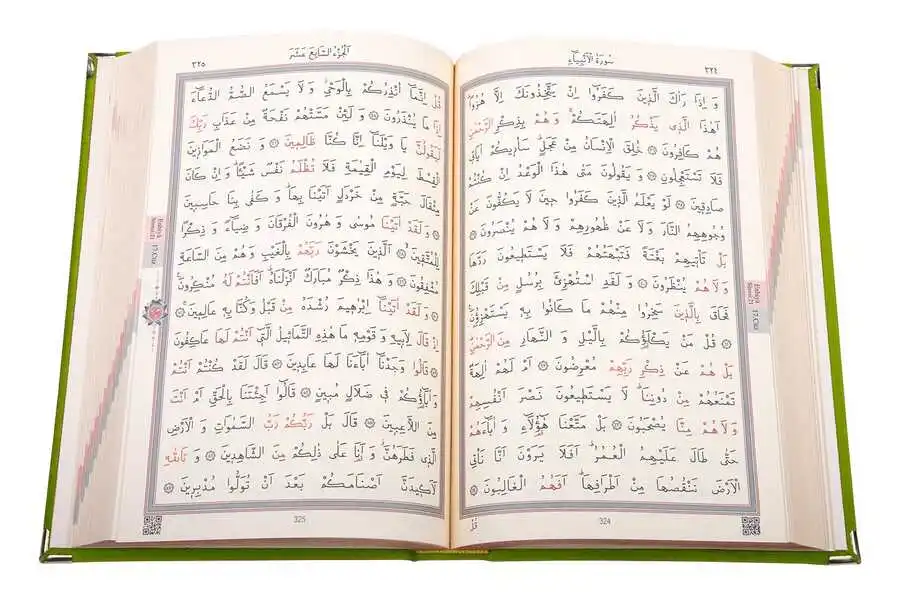 سُورَةُ الْاَنْبِيَاءِ
٣٢٤
وَ اِذَا رَاٰكَ الَّذ۪ينَ كَفَرُٓوا اِنْ يَتَّخِذُونَكَ اِلَّا هُزُوًاۜ
اَهٰذَا الَّذ۪ي يَذْكُرُ اٰلِهَتَكُمْۚ وَ هُمْ بِذِكْرِ الرَّحْمٰنِ
هُمْ كَافِرُونَ ۝ خُلِقَ الْاِنْسَانُ مِنْ عَجَلٍۜ سَاُر۪يكُمْ اٰيَات۪ي
فَلَا تَسْتَعْجِلُونِ ۝ وَ يَقُولُونَ مَتٰى هٰذَا الْوَعْدُ اِنْ كُنْتُمْ
صَادِق۪ينَ ۝ لَوْ يَعْلَمُ الَّذ۪ينَ كَفَرُوا ح۪ينَ لَا يَكُفُّونَ عَنْ
وُجُوهِهِمُ النَّارَ وَ لَا عَنْ ظُهُورِهِمْ وَ لَا هُمْ يُنْصَرُونَ ۝
بَلْ تَأْت۪يهِمْ بَغْتَةً فَتَبْهَتُهُمْ فَلَا يَسْتَط۪يعُونَ رَدَّهَا
وَ لَا هُمْ يُنْظَرُونَ ۝ وَ لَقَدِ اسْتُهْزِئَ بِرُسُلٍ مِنْ قَبْلِكَ
فَحَاقَ بِالَّذ۪ينَ سَخِرُوا مِنْهُمْ مَا كَانُوا بِه۪ يَسْتَهْزِؤُ۫نَ
۝ قُلْ مَنْ يَكْلَؤُكُمْ بِالَّيْلِ وَ النَّهَارِ مِنَ الرَّحْمٰنِۜ
بَلْ هُمْ عَنْ ذِكْرِ رَبِّهِمْ مُعْرِضُونَ ۝ اَمْ لَهُمْ اٰلِهَةٌ
تَمْنَعُهُمْ مِنْ دُونِنَاۜ لَا يَسْتَط۪يعُونَ نَصْرَ اَنْفُسِهِمْ
وَ لَا هُمْ مِنَّا يُصْحَبُونَ ۝ بَلْ مَتَّعْنَا هٰٓؤُ۬لَٓاءِ وَ اٰبَٓاءَهُمْ
حَتّٰى طَالَ عَلَيْهِمُ الْعُمُرُۜ اَفَلَا يَرَوْنَ اَنَّا نَأْتِي
الْاَرْضَ نَنْقُصُهَا مِنْ اَطْرَافِهَاۜ اَفَهُمُ الْغَالِبُونَ ۝
324
قُلْ
Enbiya
Suresi:21
17.Cüz
اَلْجُزْءُ السَّابِعَ عَشَرَ
٣٢٥
قُلْ اِنَّمَٓا اُنْذِرُكُمْ بِالْوَحْيِۘ وَ لَا يَسْمَعُ الصُّمُّ الدُّعَٓاءَ
اِذَا مَا يُنْذَرُونَ ۝ وَ لَئِنْ مَسَّتْهُمْ نَفْحَةٌ مِنْ عَذَابِ رَبِّكَ
لَيَقُولُنَّ يَا وَيْلَنَٓا اِنَّا كُنَّا ظَالِم۪ينَ ۝ وَ نَضَعُ الْمَوَاز۪ينَ
الْقِسْطَ لِيَوْمِ الْقِيٰمَةِ فَلَا تُظْلَمُ نَفْسٌ شَيْـًٔاۜ وَ اِنْ كَانَ
مِثْقَالَ حَبَّةٍ مِنْ خَرْدَلٍ اَتَيْنَا بِهَاۜ وَ كَفٰى بِنَا حَاسِب۪ينَ
۝ وَ لَقَدْ اٰتَيْنَا مُوسٰى وَ هٰرُونَ الْفُرْقَانَ وَ ضِيَٓاءً وَ ذِكْرًا
لِلْمُتَّق۪ينَۙ ۝ اَلَّذ۪ينَ يَخْشَوْنَ رَبَّهُمْ بِالْغَيْبِ وَ هُمْ مِنَ السَّاعَةِ
مُشْفِقُونَ ۝ وَ هٰذَا ذِكْرٌ مُبَارَكٌ اَنْزَلْنَاهُۜ اَفَاَنْتُمْ لَهُ مُنْكِرُونَ۟
۝ وَ لَقَدْ اٰتَيْنَٓا اِبْرٰه۪يمَ رُشْدَهُ مِنْ قَبْلُ وَ كُنَّا بِه۪ عَالِم۪ينَۚ ۝
اِذْ قَالَ لِاَب۪يهِ وَ قَوْمِه۪ مَا هٰذِهِ التَّمَاث۪يلُ الَّت۪ٓي اَنْتُمْ لَهَا عَاكِفُونَ
۝ قَالُوا وَجَدْنَٓا اٰبَٓاءَنَا لَهَا عَابِد۪ينَ ۝ قَالَ لَقَدْ كُنْتُمْ اَنْتُمْ
وَ اٰبَٓاؤُ۬كُمْ ف۪ي ضَلَالٍ مُب۪ينٍ ۝ قَالُٓوا اَجِئْتَنَا بِالْحَقِّ اَمْ اَنْتَ
مِنَ اللَّاعِب۪ينَ ۝ قَالَ بَلْ رَبُّكُمْ رَبُّ السَّمٰوَاتِ وَ الْاَرْضِ
الَّذ۪ي فَطَرَهُنَّۘ وَ اَنَا۬ عَلٰى ذٰلِكُمْ مِنَ الشَّاهِد۪ينَ ۝ وَ تَاللّٰهِ
لَاَك۪يدَنَّ اَصْنَامَكُمْ بَعْدَ اَنْ تُوَلُّوا مُدْبِر۪ينَ ۝
325
Enbiya
Suresi:21
17.Cüz